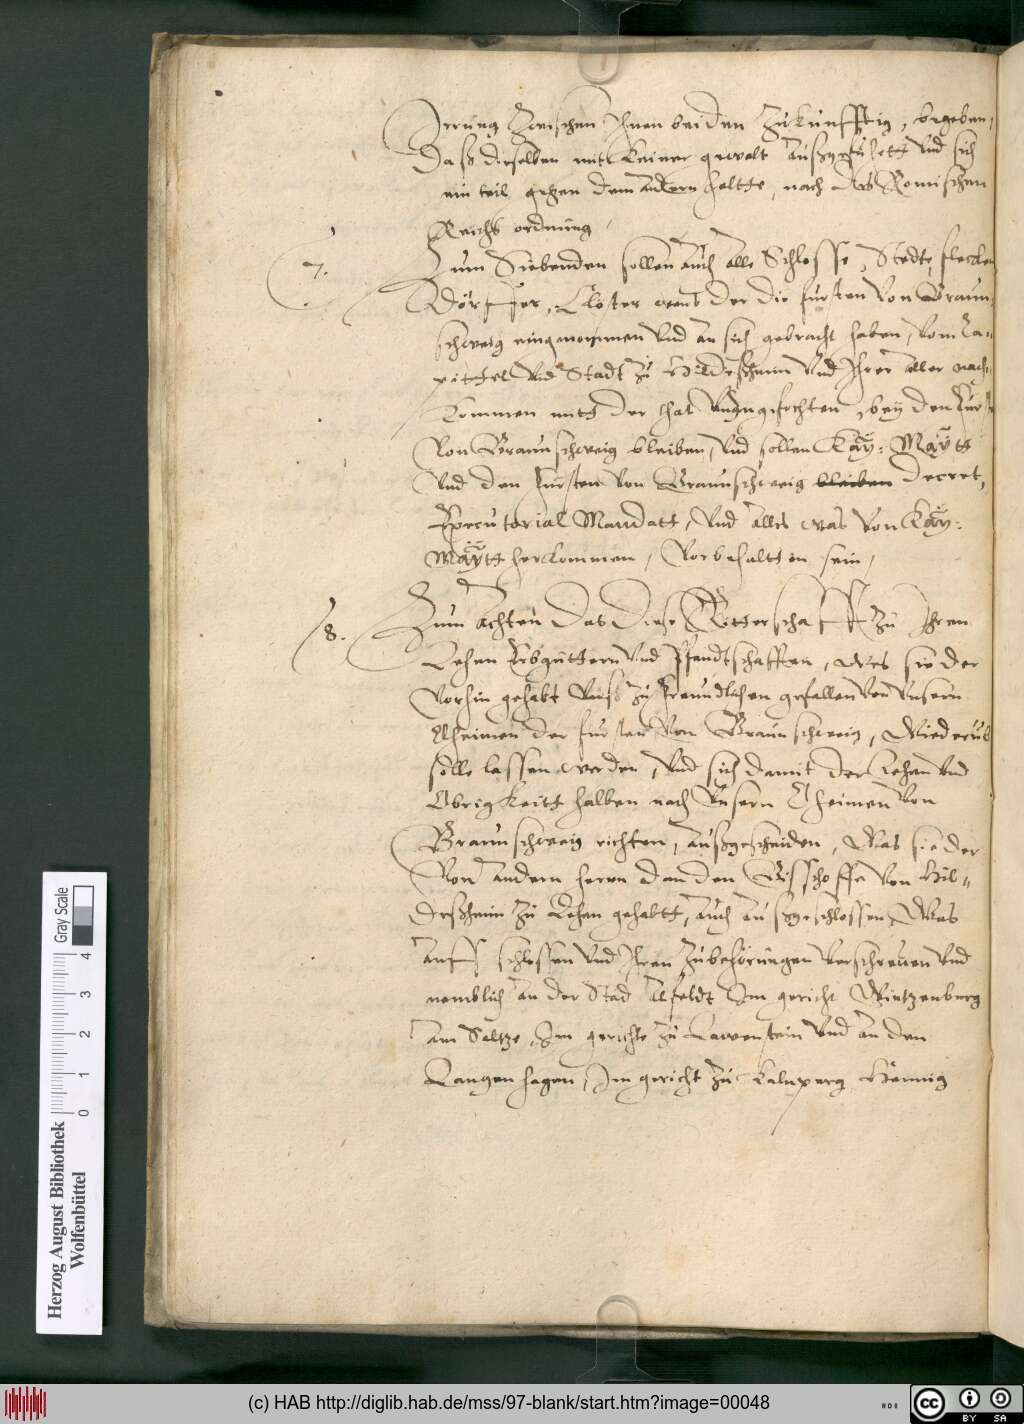 Irrung zwischen Ihnen beiden zukunfftig, begeben,
Daß dieselben mit keiner gewalt außgefuhrtt vnd sich
ein teil gegen dem andern haltte, nach des Romischen
Reichs ordnung,
7. Zum Siebenden sollen auch alle Schlosse, Stedte, flecken
Dörffer, Clöster vnd der die fursten von Braun-
schweig eingenommen vnd an sich gebracht haben, vom Ca-
pittel vnd Stadt zu Hildeßheim vnd Ihrer aller nach-
kommen mit der that vnangefochten, bey den Fur
Von Braunschweig bleiben, vnd sollen Kaÿ: Maÿtt
vnd den fursten von Braunschweig bleiben Decret,
Executorial Mandatt, vnd alles was von Kaÿ:
Maÿtt herkommen, Vorbehaltten sein,
8. Zum Achten Das Diese Ritterschafft zu Ihren
Lehen Erbguttern vnd Pfandtschafften, Wes sie der
vorhin gehabt vnß zu freundlichen gefallen von vnsern
Oheimen der fursten von Braunschweig, Wiederub
solle lassen werden, vnd sich damit der Lehen vnd
Obrigkeitt halben nach vnsern Oheimen von
Braunschweig richten, außgescheiden, Was sie der
Von andern hern dan den Bisschoffe von Hil-
deßheim zu Lehen gehabtt, auch außgeschlossen Was
auff schlossen vnd Ihren zubehörungen verschreuen vnd
nemblich an der Stad Alfeldt Im gericht Wintzenburg
am Saltze, Im gerichte zu Lawenstein vnd an den
Langenhagen, Im gericht zu Kalnperg Hennig
Herzog August Bibliothek
Wolfenbüttel
Gray Scale
0 1 2 3 4
(c) HAB http://diglib.hab.de/mss/97-blank/start.htm?image=00048
cc BY SA